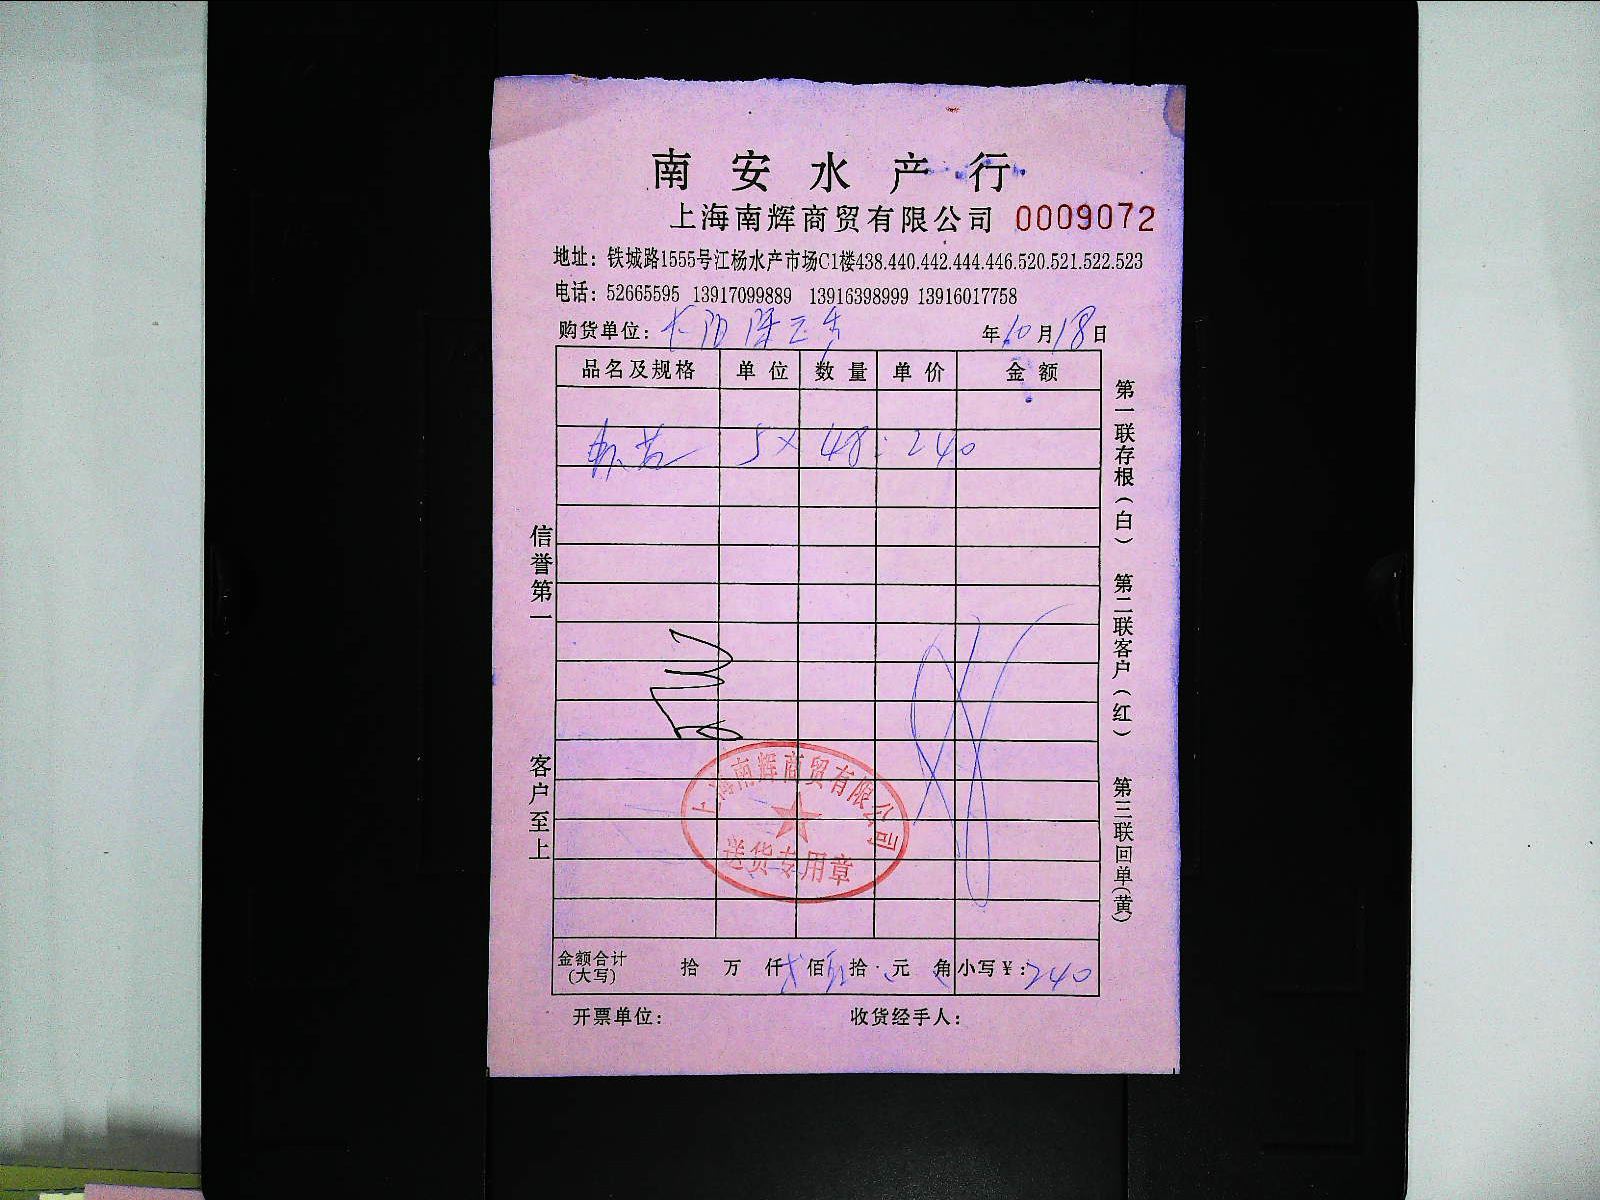 南安水产行
上海南辉商贸有限公司 0009072
地址：铁城路1555号江杨水产市场C1楼438.440.442.444.446.520.521.522.523
电话：52665595 13917099889 13916398999 13916017758
购货单位： 年10月18日
品名及规格 单位 数量 单价 金额
5× 48: 240
上海南辉商贸有限公司
送货专用章
金额合计（大写） 拾 万 仟 佰 拾 元 角 小写¥：240
开票单位： 收货经手人：
信誉第一 客户至上
第一联存根（白） 第二联客户（红） 第三联回单（黄）